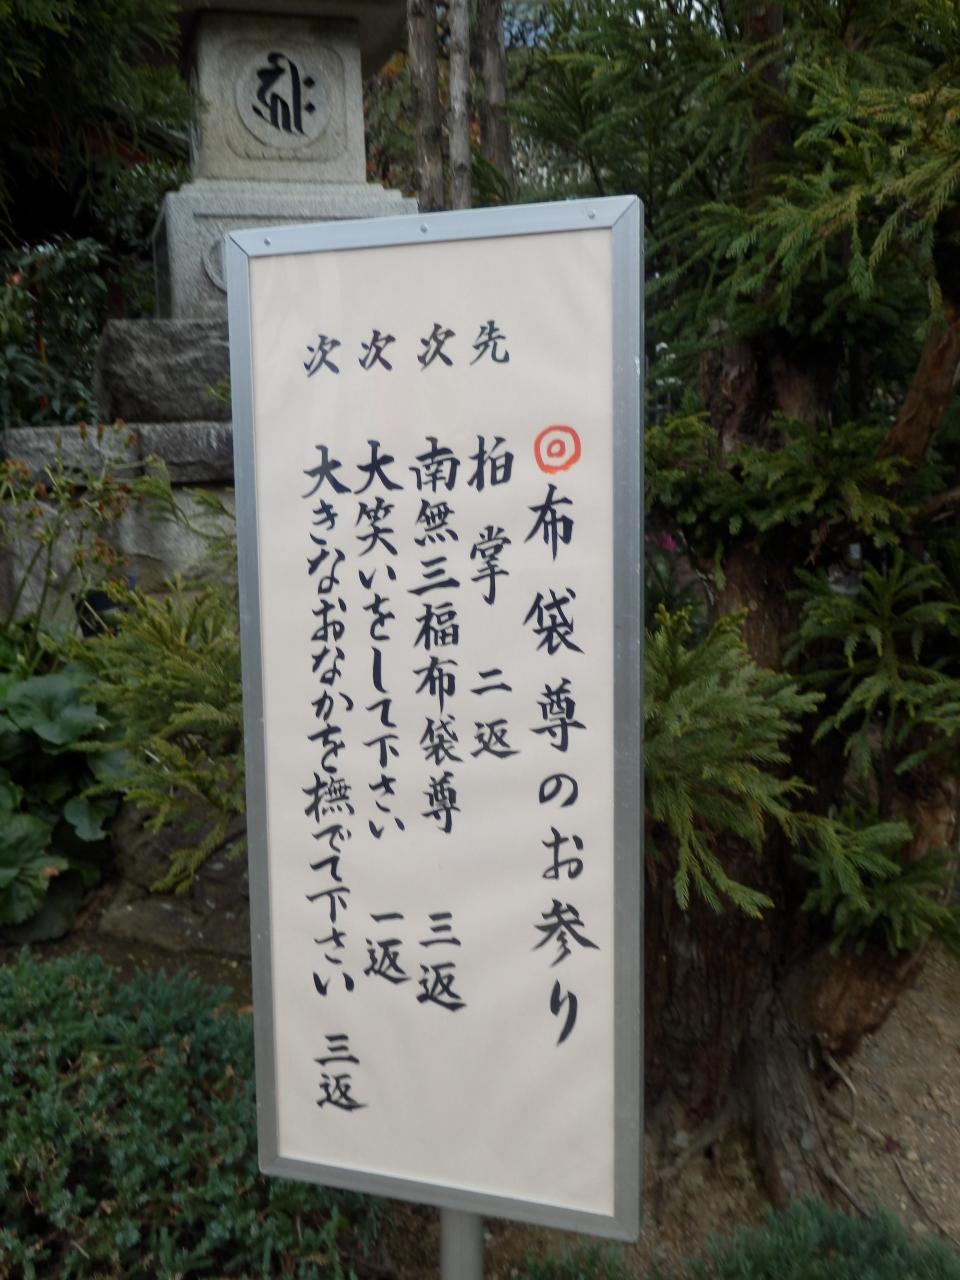 ◎布袋尊のお参り
先 拍掌 二返
次 南無三福布袋尊 三返
次 大笑いをして下さい 一返
次 大きなおなかを撫でて下さい 三返